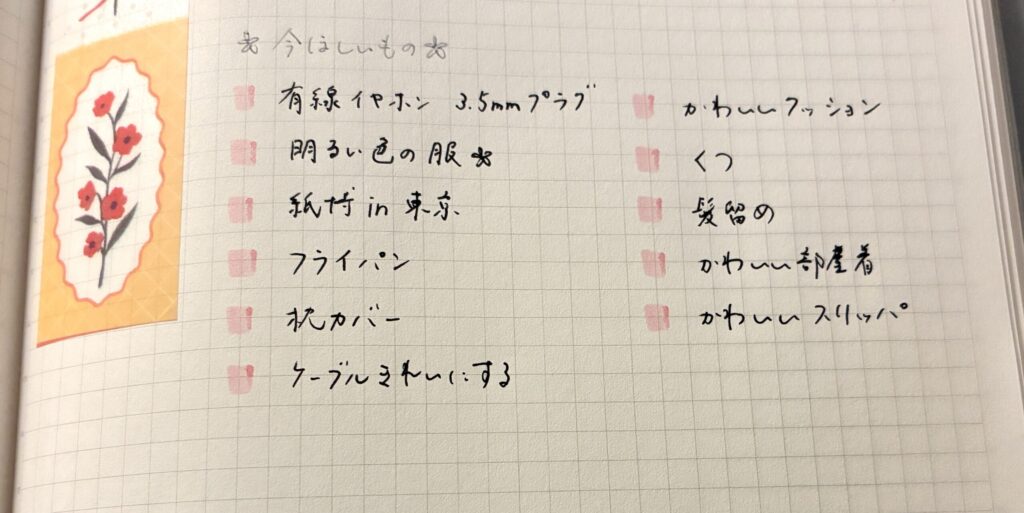 今ほしいもの
有線イヤホン 3.5mmプラグ
明るい色の服
紙博 in 東京
フライパン
枕カバー
ケーブルきれいにする
かわいいクッション
くつ
髪留め
かわいい部屋着
かわいいスリッパ